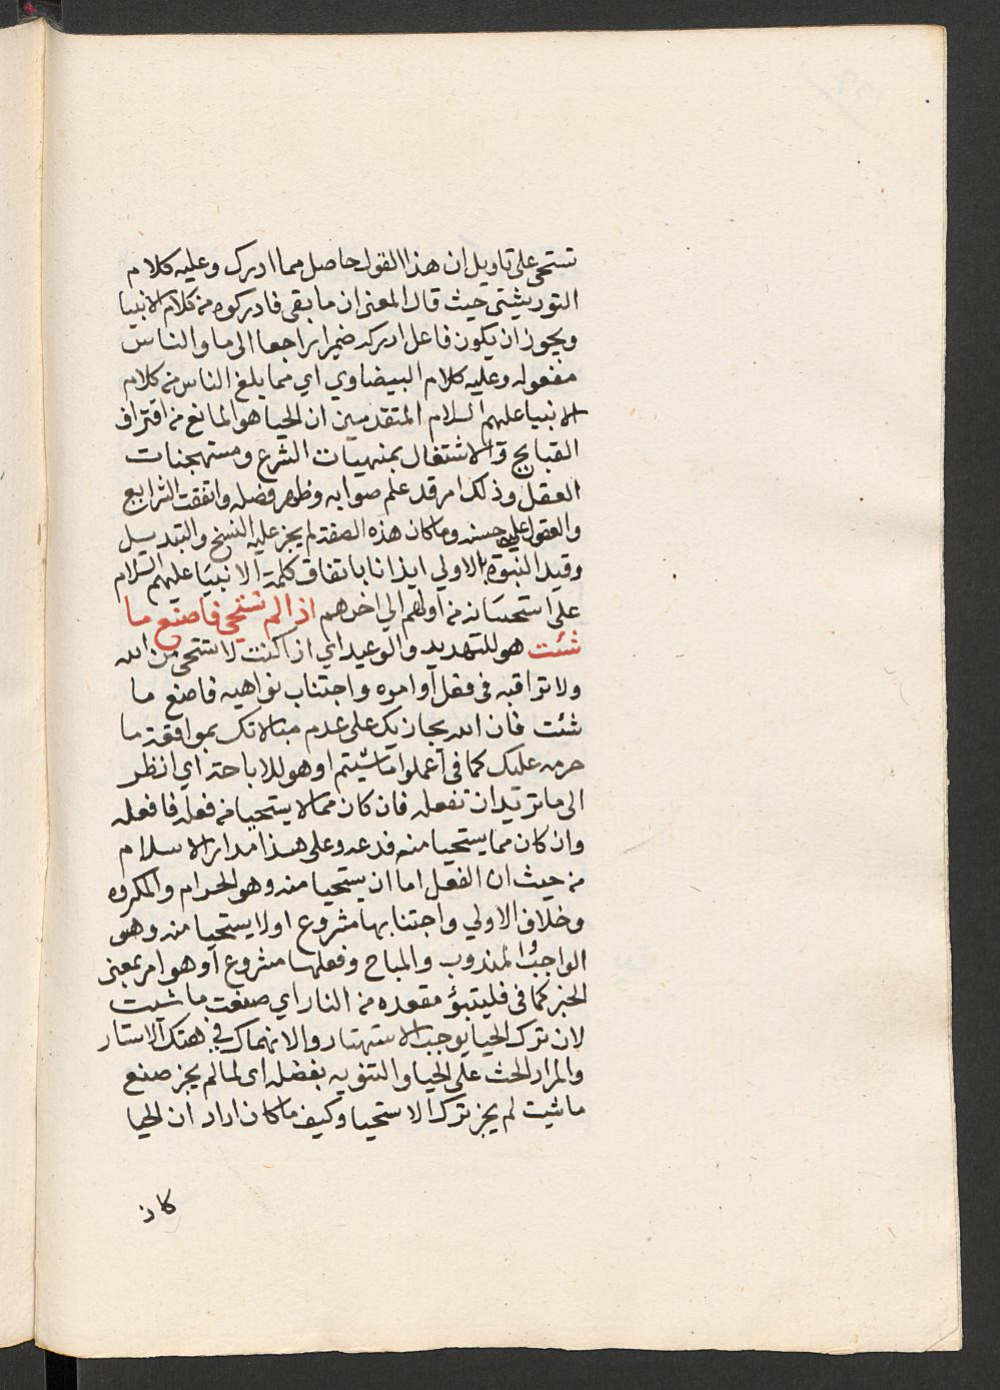 تستحى على تاويل ان هذا القول حاصل مما ادرك وعليه كلام
التوربشتى حيث قال المعنى ان ما بقى فادركوه من كلام الانبيا
ويجوز ان يكون فاعل ادرك ضميرا راجعا الى ما والناس
مفعوله وعليه كلام البيضاوي اي مما بلغ الناس من كلام
الانبيا عليهم السلام المتقدمين ان الحيا هو المانع من اقتراف
القبايح والاشتغال بمنهيات الشرع ومستهجنات
العقل وذلك امر قد علم صوابه وظهر فضله واتفقت الشرايع
والعقول على حسنه وما كان هذه الصفة لم يجز عليه النسخ والتبديل
وقيد النبوة بالاولي ايذانا باتفاق كلمة الانبيا عليهم السلام
على استحسانه من اولهم الي اخرهم اذا لم تستحى فاصنع ما
شئت هو للتهديد والوعيد اي اذا كنت لا تستحى من الله
ولا تراقبه فى فعل اوامره واجتناب نواهيه فاصنع ما
شئت فان الله يجازيك على عدم مبالاتك بموافقة ما
حرمه عليك كما فى اعملوا ما شيتم او هو للاباحة اي انظر
الى ما تريد ان تفعله فان كان مما لا يستحيا من فعله فافعله
وان كان مما يستحيا منه فدعه وعلى هذا مدار الاسلام
من حيث ان الفعل اما ان يستحيا منه وهو الحرام والمكروه
وخلاف الاولي واجتنابها مشروع او لا يستحيا منه وهو
الواجب والمندوب والمباح وفعلها مشروع او هو امر بمعنى
الخبر كما فى فليتبؤ مقعده من النار اي صنعت ما شيت
لان ترك الحيا يوجب الاستهتار والانهماك في هتك الاستار
والمراد الحث على الحيا والتنويه بفضله اى لما لم يجز صنع
ما شيت لم يجز ترك الاستحيا وكيف ما كان اراد ان الحيا
كان